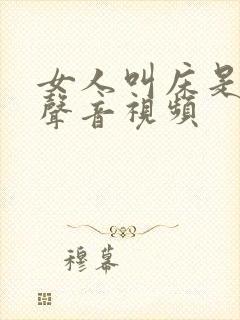 女人叫床是
聲音視頻
穆幕